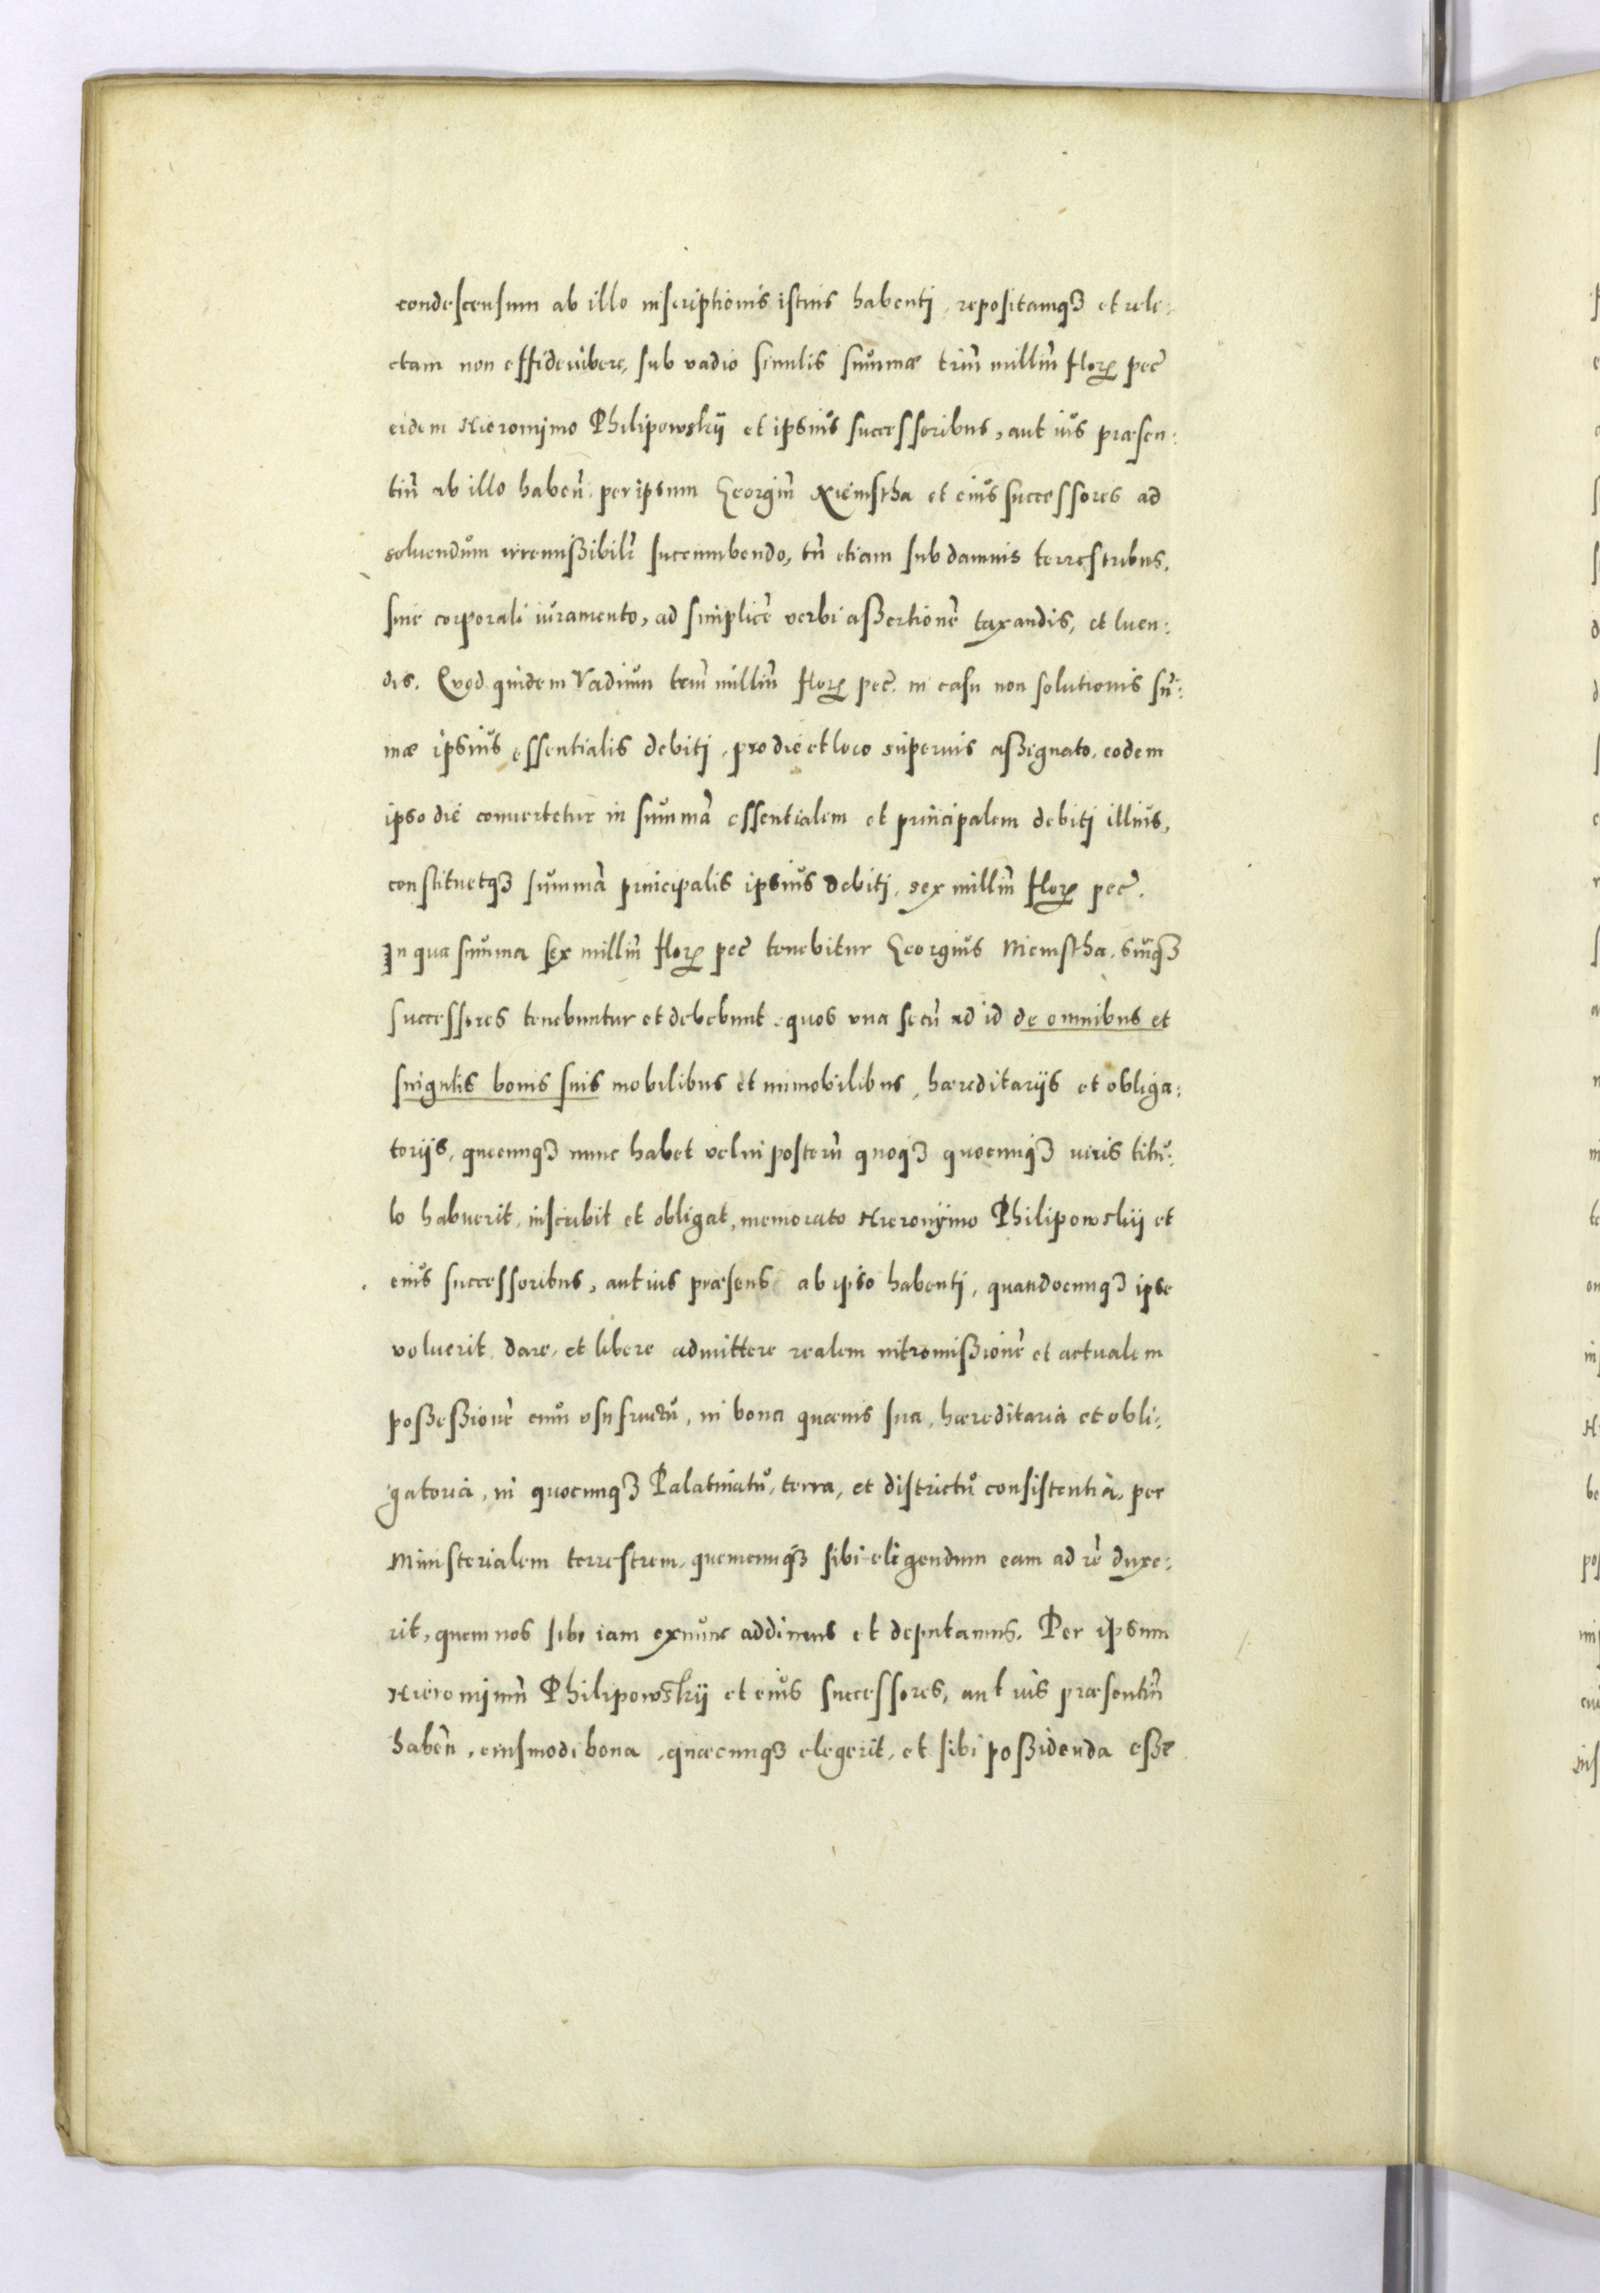 condescensum ab illo inscriptionis istius habenti, repositamqꝫ et rele:
ctam non effideiubere, sub vadio similis summæ triũ milliũ florꝝ pec̃
eidem Hieronijmo Philipowskij et ipsius successoribus, aut ius præsen:
tiũ ab illo habeñ. per ipsum Georgiũ Niemstha et eius successores ad
soluendum irremißibilr̃ succumbendo, tñ etiam sub damnis terrestribus,
sine corporali iuramento, ad simplicẽ verbi aßertionẽ taxandis, et luen:
dis. Quod quidem Vadium triũ milliũ florꝝ pec̃. in casu non solutionis sũ:
mæ ipsius essentialis debiti, pro die et loco superius aßignato, eodem
ipso die conuertetur in summã essentialem et principalem debiti illius,
constituetqꝫ summã principalis ipsius debiti, sex milliũ florꝝ pec̃.
In qua summa sex milliũ florꝝ pec̃ tenebitur Georgius Niemstha, suiqꝫ
successores tenebuntur et debebunt, quos vna secũ ad id de omnibus et
singulis bonis suis mobilibus et immobilibus, hæreditarijs et obliga:
torijs, quæcunqꝫ nunc habet vel in posterũ quoqꝫ quocunqꝫ iuris titu:
lo habuerit, inscribit et obligat, memorato Hieronijmo Philipowskij et
eius successoribus, aut ius præsens ab ipso habenti, quandocunqꝫ ipse
voluerit, dare, et libere admittere realem intromißionẽ et actualem
poßeßionẽ cum vsufructu, in bona quæuis sua, hæreditaria et obli:
gatoria, in quocunqꝫ Palatinatu, terra, et districtu consistentia, per
Ministerialem terrestrem, quemcunqꝫ sibi eligendum eam ad rẽ duxe:
rit, quem nos sibi iam ex nunc addimus et deputamus. Per ipsum
Hieronijmũ Philipowskij et eius successores, aut ius præsentiũ
habeñ, eiusmodi bona, quæcunqꝫ elegerit, et sibi poßidenda eße